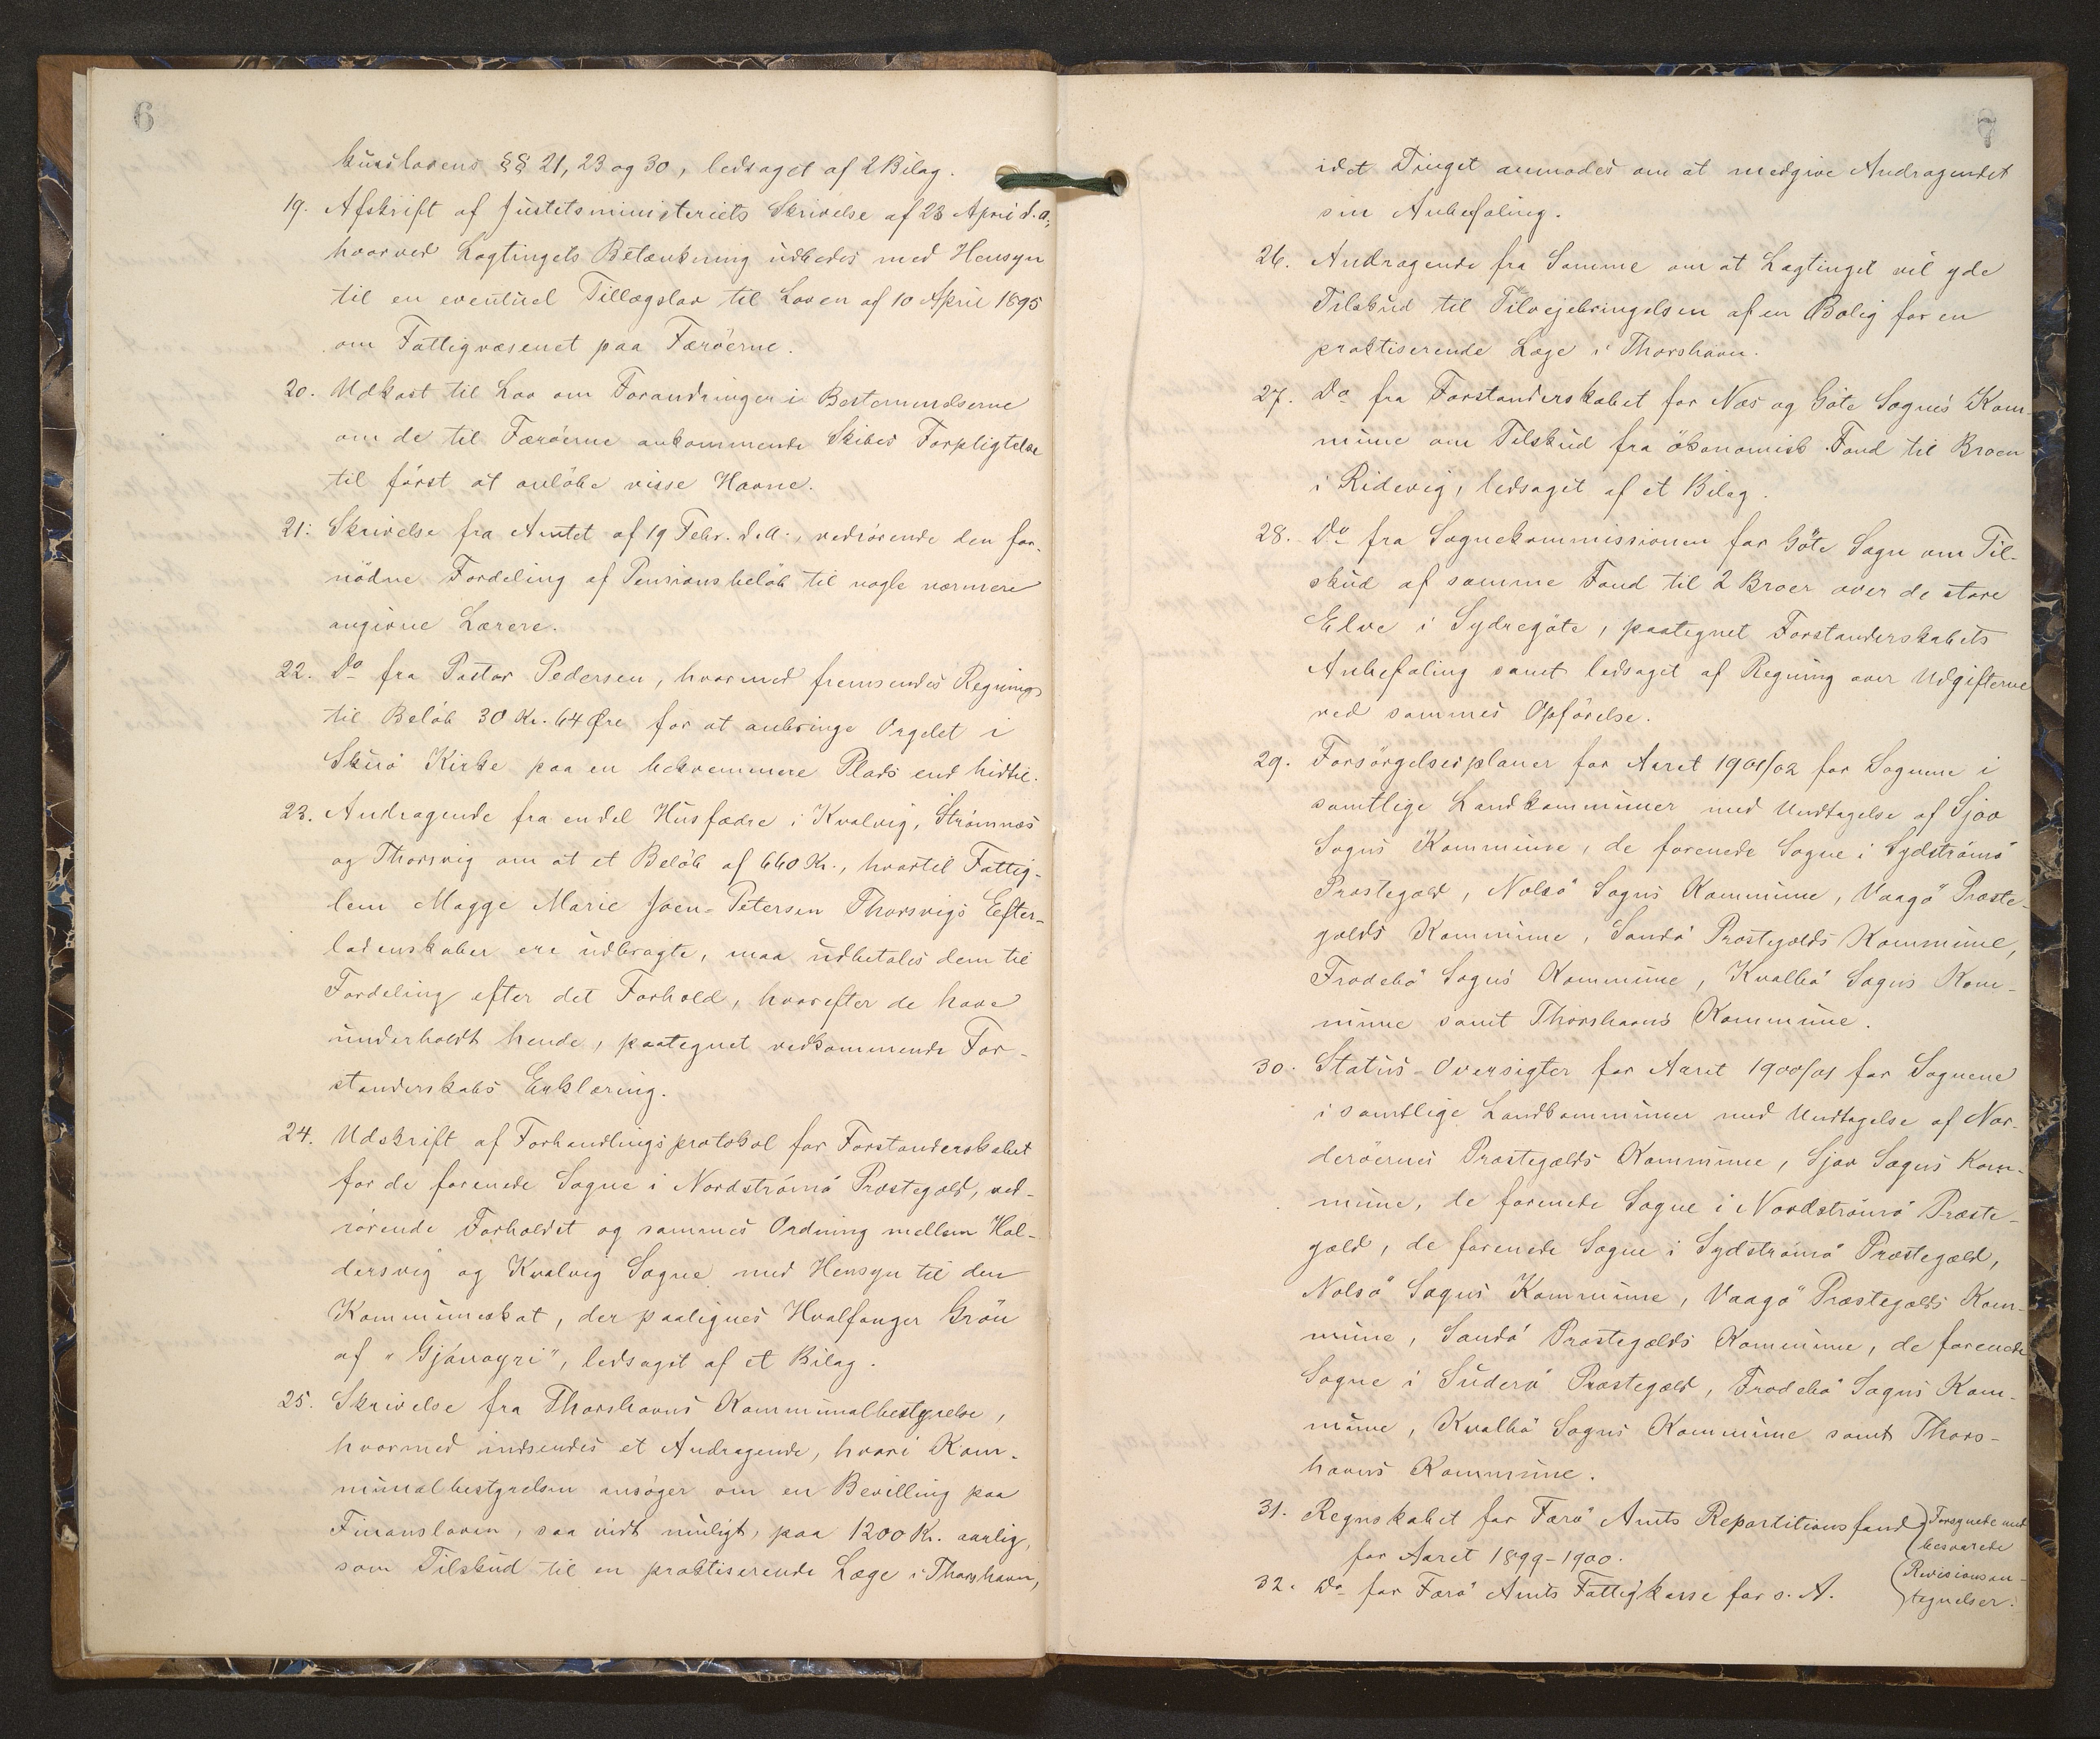 6
lovens §§ 21, 23 og 30, ledsaget af 2 Bilag.
19. Afskrift af Justitsministeriets Skrivelse af 23 April d. A.,
hvorved Lagtingets Betænkning udbedes med Hensyn
til en eventuel Tillægslov til Loven af 10 April 1895
om Fattigvæsenet paa Færöerne.
20. Udkast til Lov om Forandringer i Bestemmelserne
om de til Færöerne ankommende Skibes Forpligtelse
til først at anløbe visse Havne.
21. Skrivelse fra Amtet af 19 Febr. d. A., vedrørende den for-
nødne Fordeling af Pensionsbeløb til nogle nærmere
angivne Lærere.
22. Do fra Pastor Pedersen, hvormed fremsendes Regning
til Beløb 30 Kr. 64 Øre for at anbringe Orgelet i
Skuö Kirke paa en bekvemmere Plads end hidtil.
23. Andragende fra endel Husfædre i Kvalvig, Strömnæs
og Thorsvig om at et Beløb af 660 Kr., hvortil Fattig-
lem Magge Marie Joen-Petersen Thorsvigs Efter-
ladenskaber ere udbragte, maa udbetales dem til
Fordeling efter det Forhold, hvorefter de have
underholdt hende, paategnet vedkommende For-
standerskabs Erklæring.
24. Udskrift af Forhandlingsprotokol for Forstanderskabet
for de forenede Sogne i Nordströmö Præstegæld, ved-
rørende Forholdet og sammes Ordning mellem Hal-
dersvig og Kvalvig Sogne med Hensyn til den
Kommuneskat, der paalignes Hvalfanger Grön
af "Gjánoyri", ledsaget af et Bilag.
25. Skrivelse fra Thorshavns Kommunalbestyrelse,
hvormed indsendes et Andragende, hvori Kom-
munalbestyrelsen ansøger om en Bevilling paa
Finansloven, saa vidt muligt, paa 1200 Kr. aarlig,
som Tilskud til en praktiserende Læge i Thorshavn,
7
idet Tinget anmodes om at medgive Andragendet
sin Anbefaling.
26. Andragende fra Samme om at Lagtinget vil yde
Tilskud til Tilvejebringelsen af en Bolig for en
praktiserende Læge i Thorshavn.
27. Do fra Forstanderskabet for Næs og Göte Sognes Kom-
mune om Tilskud fra ökonomisk Fond til Broen
i Ridevig, ledsaget af et Bilag.
28. Do fra Sognekommissionen for Göte Sogn om Til-
skud af samme Fond til 2 Broer over de store
Elve i Sydregöte, paategnet Forstanderskabets
Anbefaling samt ledsaget af Regning over Udgifterne
ved sammes Opførelse.
29. Forsörgelsesplaner for Aaret 1901/02 for Sognene i
samtlige Landkommuner med Undtagelse af Sjov
Sogns Kommune, de forenede Sogne i Sydströmö
Præstegæld, Nolsö Sogns Kommune, Vaagö Præste-
gælds Kommune, Sandö Præstegælds Kommune,
Frodebö Sogns Kommune, Kvalbö Sogns Kom-
mune samt Thorshavns Kommune.
30. Status-Oversigter for Aaret 1900/01 for Sognene
i samtlige Landkommuner med Undtagelse af Nor-
deröernes Præstegælds Kommune, Sjov Sogns Kom-
mune, de forenede Sogne i Nordströmö Præste-
gæld, de forenede Sogne i Sydströmö Præstegæld,
Nolsö Sogns Kommune, Vaagö Præstegælds Kom-
mune, Sandö Præstegælds Kommune, de forenede
Sogne i Suderö Præstegæld, Frodebö Sogns Kom-
mune, Kvalbö Sogns Kommune samt Thors-
havns Kommune.
31. Regnskabet for Færö Amts Repartitionsfond
for Aaret 1899-1900.
32. Do for Færö Amts Fattigkasse for s. A.
Forsynede med
besvarede
Revisionsan-
tegnelser.